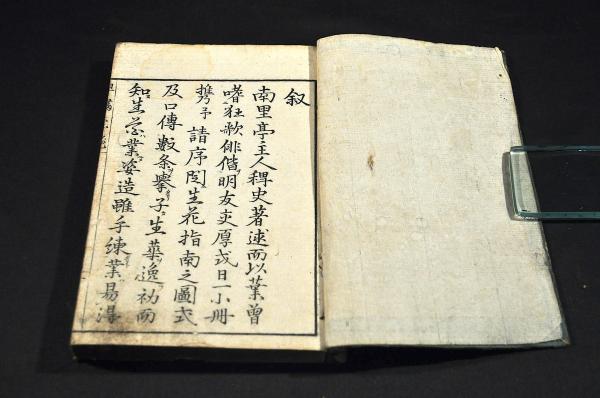 叙
南里亭主人稗史著述而以業曽
嗜狂歌俳偕明友交厚或日一小冊
携予請序閲生花指南之圖式
及口傳數条挙子生華逸初而
知生花業姿造雖手練業易得